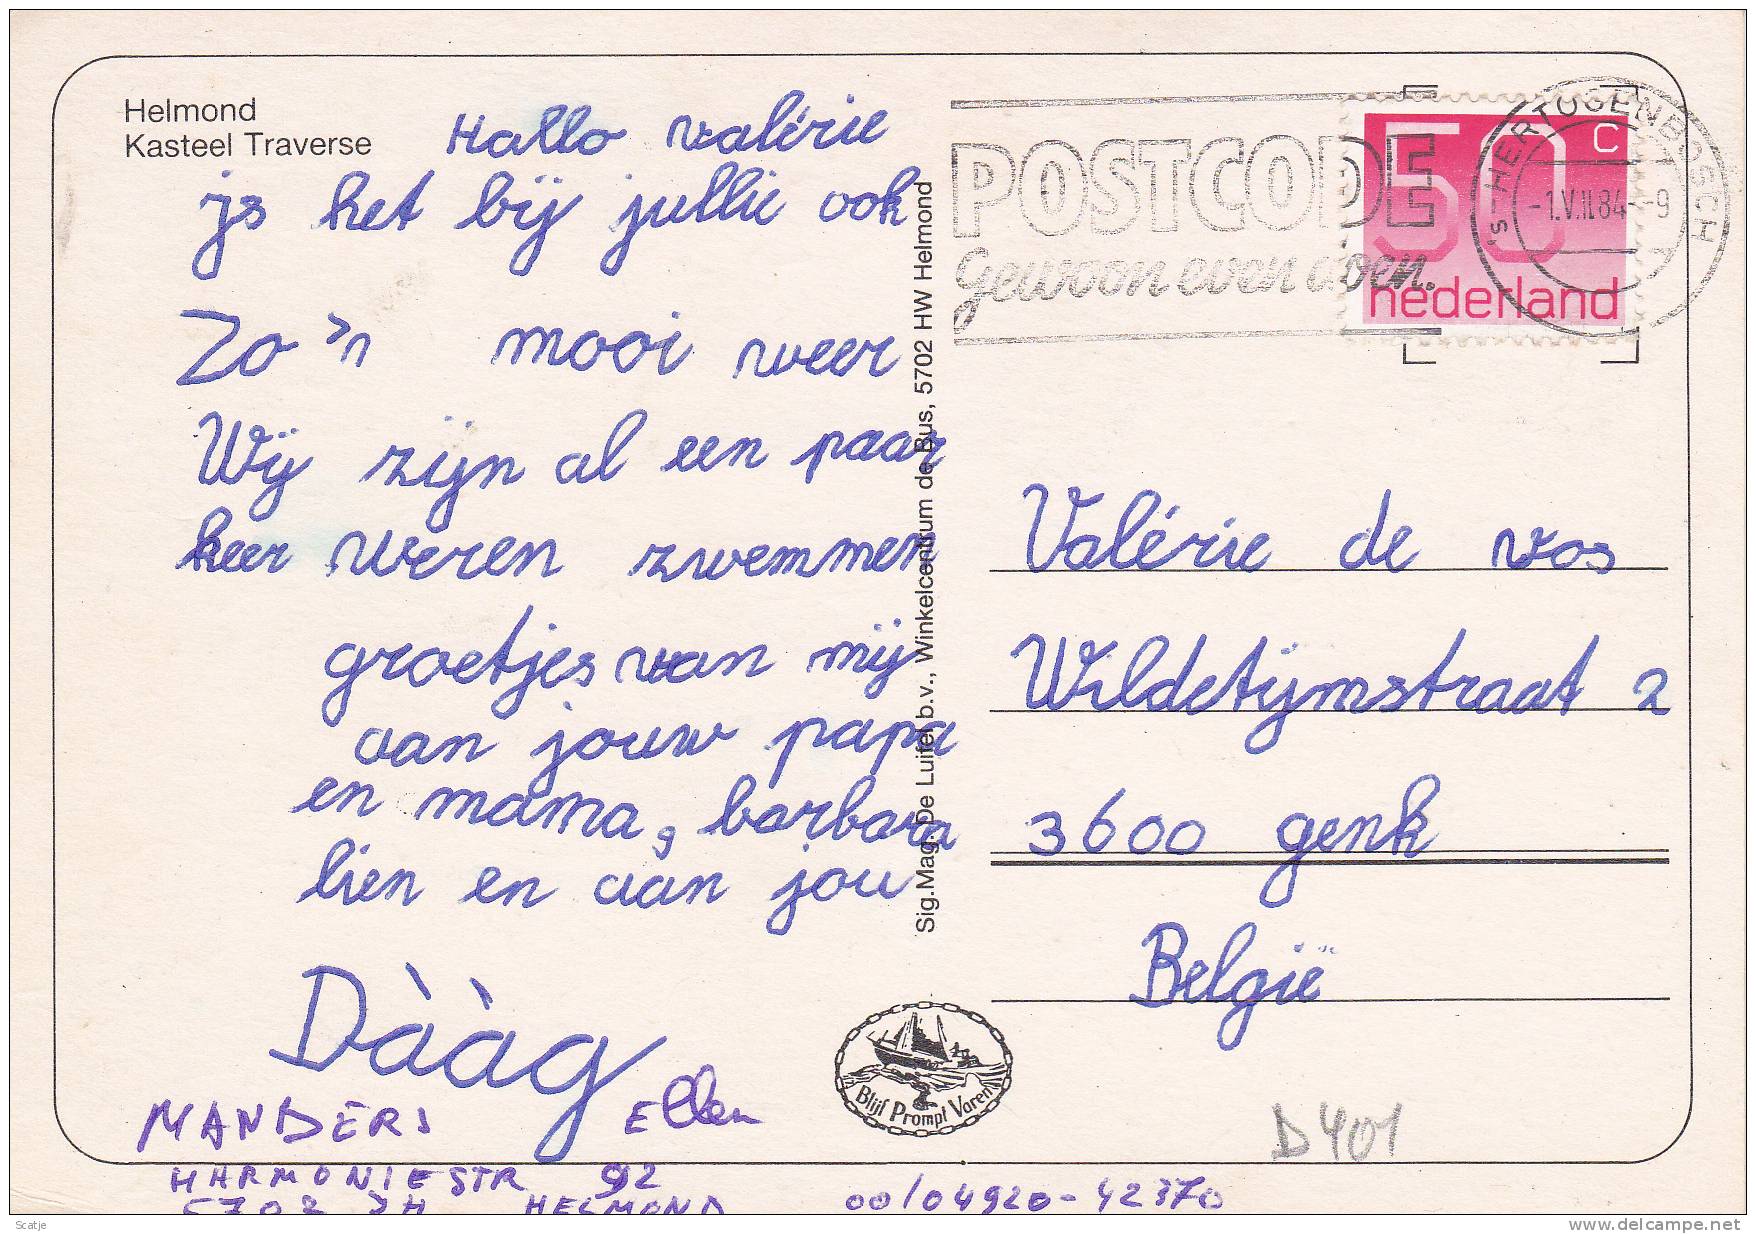 Helmond
Kasteel Traverse
Hallo Valérie
js het bij jullie ook
Zo 'n mooi weer
Wij zijn al een paar
keer weren zwemmen
groetjes van mij
aan jouw papa
en mama, barbara
lien en aan jou
Dààg
Ellen
MANDERS
HARMONIESTR 92
HELMOND
00/04920-42370
Sig.Mag. De Luifel b.v., Winkelcentrum de Bus, 5702 HW Helmond
POSTCODE
gewoon even doen.
50 c
nederland
's-HERTOGENBOSCH
-1.VIII.84--9
Valérie de vos
Wildetijmstraat 2
3600 genk
België
Blijf Prompt Varen
D401
Scatje
delcampe.net